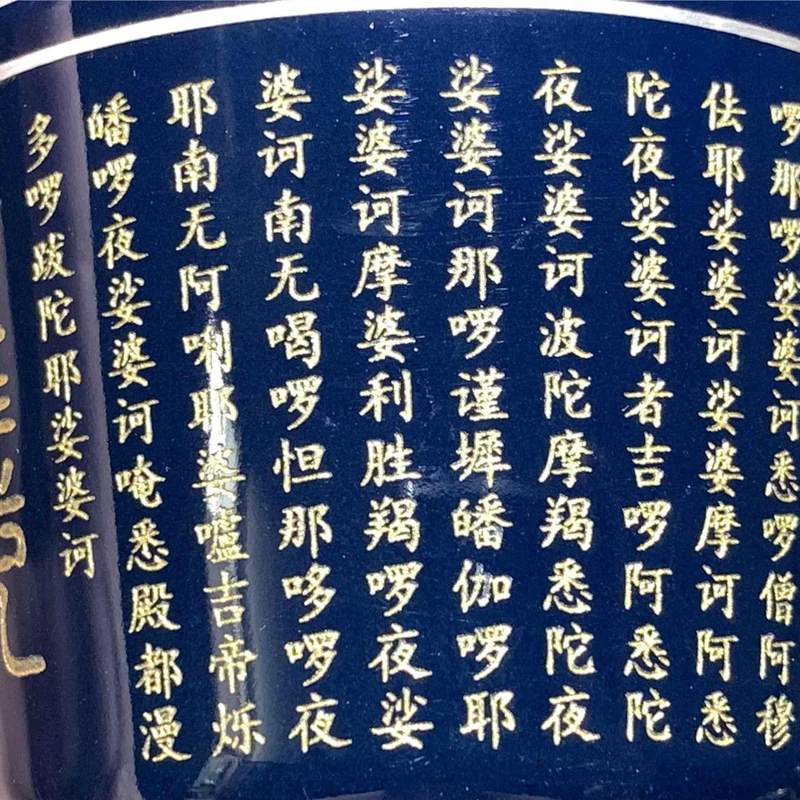 啰那啰娑婆诃悉啰僧阿穆
佉耶娑婆诃娑婆摩诃阿悉
陀夜娑婆诃者吉啰阿悉陀
夜娑婆诃波陀摩羯悉陀夜
娑婆诃那啰谨墀皤伽啰耶
娑婆诃摩婆利胜羯啰夜娑
婆诃南无喝啰怛那哆啰夜
耶南无阿唎耶婆嚧吉帝烁
皤啰夜娑婆诃唵悉殿都漫
多啰跋陀耶娑婆诃